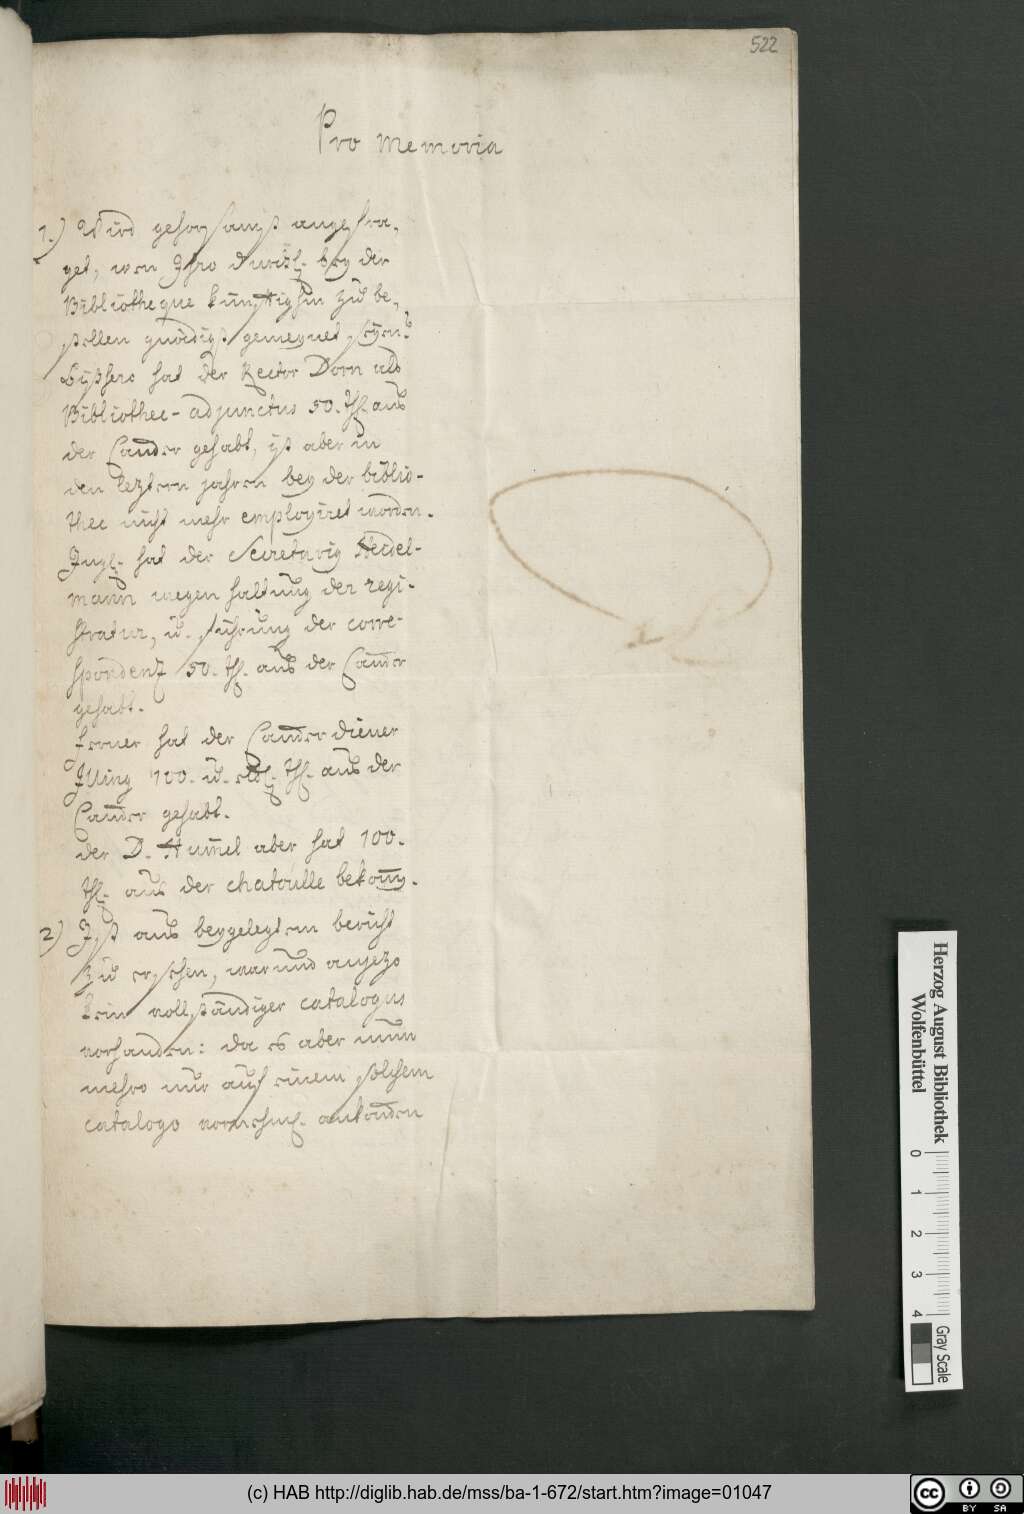 522
Pro Memoria
1.) Wird gehorsamst angefra-
get, wen Ihro Durchl. bey der
Bibliotheque künfftighin zu be-
stellen gnädigst gemeynet seyen?
Bißhero hat der Rector Dorn als
Bibliothec-adjunctus 50. thl. aus
der Cammer gehabt, ist aber in
den leztern jahren bey der biblio-
thec nicht mehr employiret worden.
Ingl. hat der Secretariy Heidel-
mann wegen haltung der regi-
stratur, u. führung der corre-
spondenz 50. thl. aus der Cammer
gehabt.
ferner hat der Cammer diener
Illing 100. u. thl. aus der
Cammer gehabt.
der D. Hummel aber hat 100.
thl. aus der chatoulle bekomm.
2.) Ist aus beygelegtem bericht
zu ersehen, warumb anjezo
kein vollständiger catalogus
vorhanden: da es aber nun
mehro nur auf einem solchem
catalogo vornehml. ankommen
Herzog August Bibliothek
Wolfenbüttel
0 1 2 3 4
Gray Scale
(c) HAB http://diglib.hab.de/mss/ba-1-672/start.htm?image=01047
cc BY SA